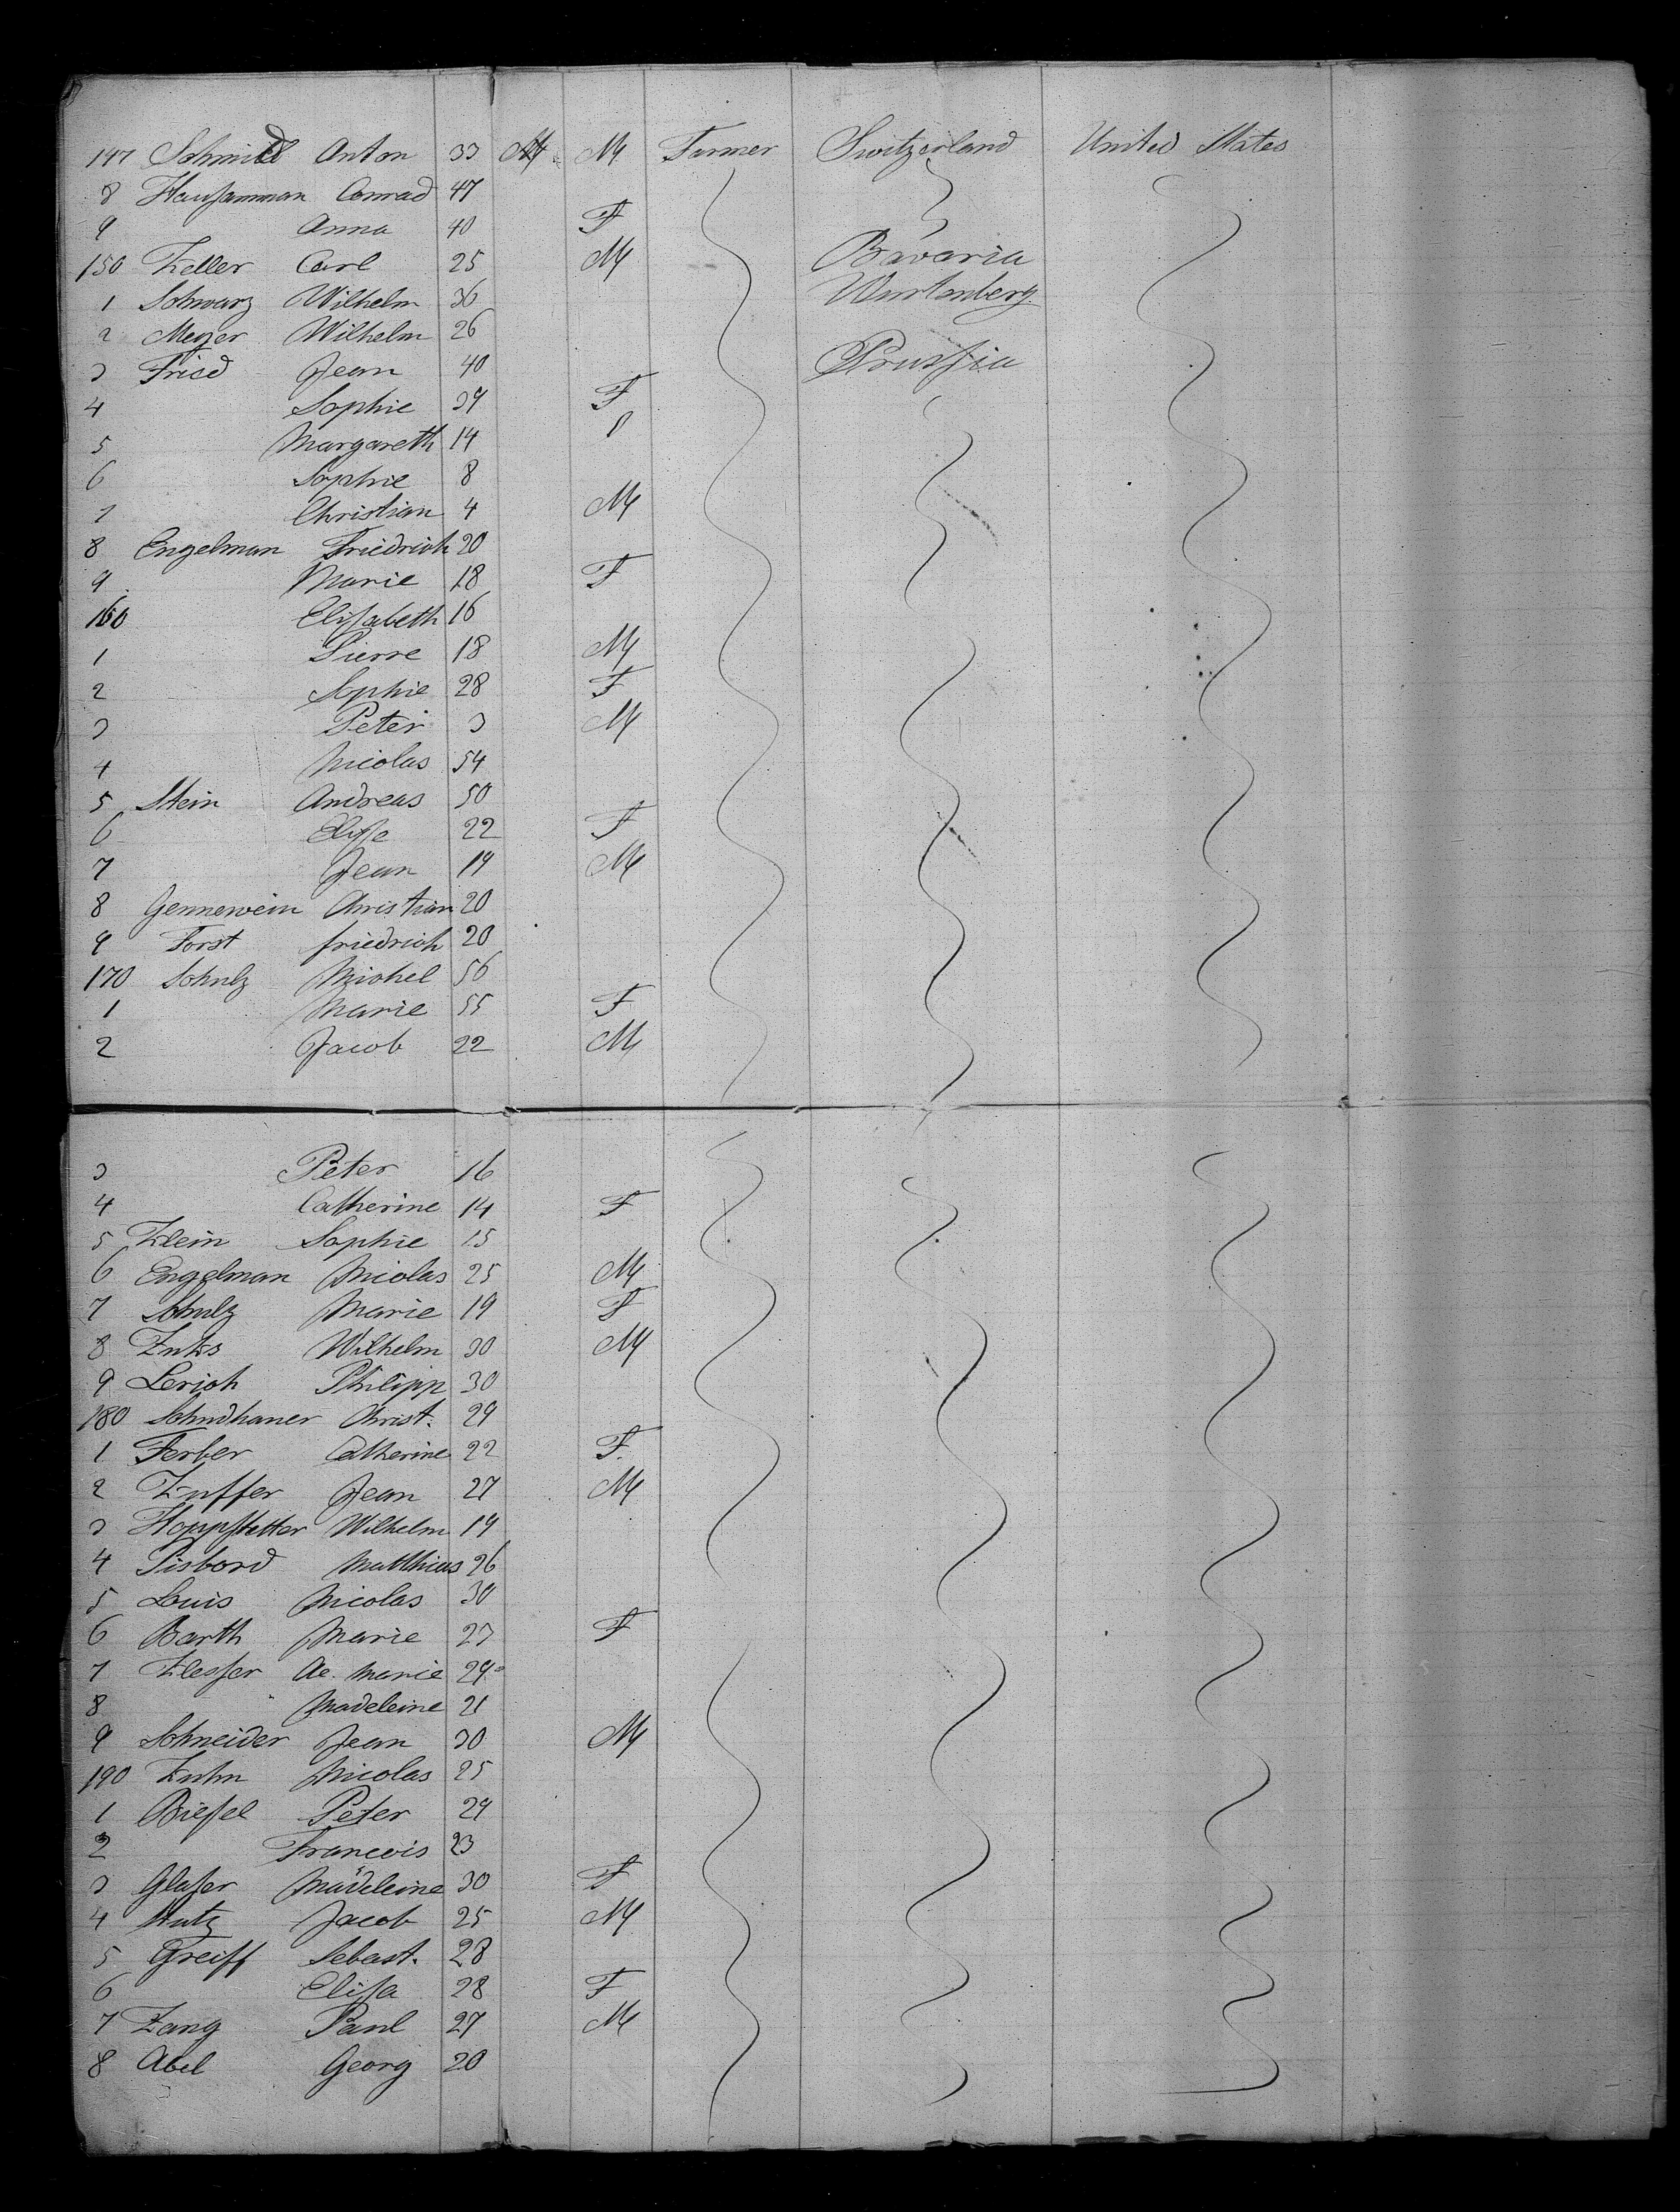 147 Schmidt Anton 33 M Farmer Switzerland United States
8 Hausamman Conrad 47
9 Anna 40 F
150 Keller Carl 25 M Bavaria
1 Schwarz Wilhelm 36 Wurtenberg
2 Meyer Wilhelm 26
3 Fried Jean 40 Prussia
4 Sophie 39 F
5 Margareth 14
6 Sophie 8
7 Christian 4 M
8 Engelman Friedrich 20
9 Marie 18 F
160 Elisabeth 16
1 Pierre 18 M
2 Sophie 28 F
3 Peter 3 M
4 Nicolas 54
5 Stein Andreas 50
6 Elise 22 F
7 Jean 19 M
8 Gennewein Christian 20
9 Forst friedrich 20
170 Schulz Michel 56
1 Marie 55 F
2 Jacob 22 M
3 Peter 16
4 Catherine 14 F
5 Klein Sophie 15
6 Engelman Nicolas 25 M
7 Schulz Marie 19 F
8 Wilhelm 30 M
9 Lerich Philipp 30
180 Christ. 29
1 Ferber Catherine 22 F.
2 Kuffer Jean 27 M
3 Hoppstetter Wilhelm 19
4 Pisbord Matthias 26
5 Louis Nicolas 30
6 Barth Marie 23 F
7 Klesser Marie 29
8 " Madeleine 21
9 Schneider Jean 30 M
190 Kuhn Nicolas 25
1 Biesel Peter 29
2 Francois 23
3 Glaser Madeleine 30 F
4 Jacob 25 M
5 Greiff Sebast. 28
6 Elisa 28 F
7 Zang Paul 27 M
8 Abel Georg 20